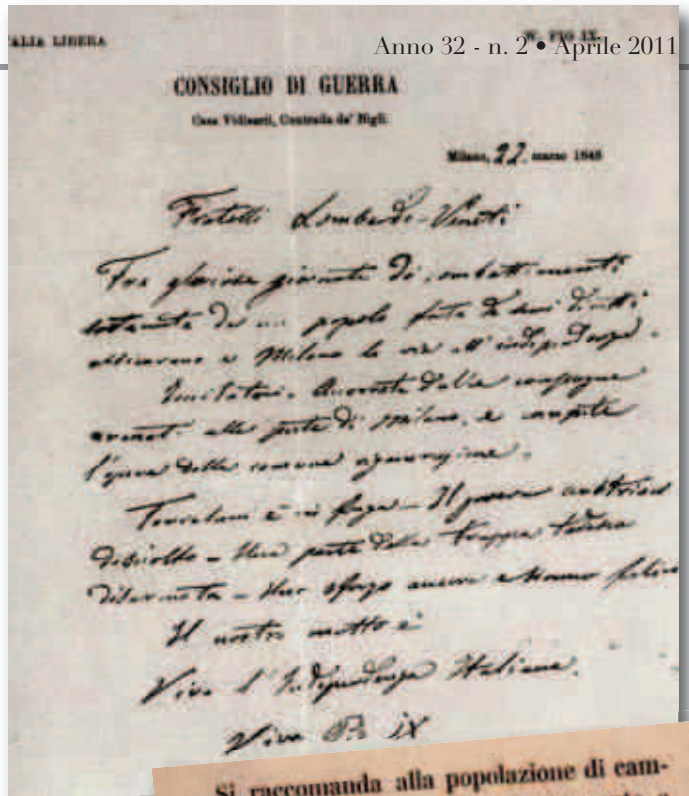 ALIA LIBERA
W. PIO IX.
Anno 32 - n. 2 • Aprile 2011
CONSIGLIO DI GUERRA
Casa Vidiserti, Contrada de' Bigli.
Milano, 22 marzo 1848
Fratelli Lombardo-Veneti
Tre gloriose giornate di combattimenti
sostenute da un popolo forte de' suoi diritti
assicurano a Milano la via all'indipendenza.
Imitateci. Accorrete dalle campagne
armati alle porte di Milano, e compite
l'opera della comune rigenerazione.
Torresani è in fuga - Il governo austriaco
disciolto - Una parte della truppa tedesca
disarmata - Uno sforzo ancora e siamo felici
Il nostro motto è
Viva l'Indipendenza Italiana.
Viva Pio IX
Si raccomanda alla popolazione di cam-